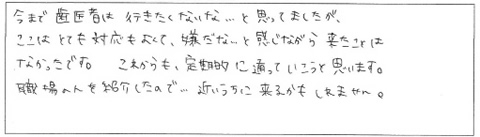 今まで歯医者は行きたくないな…と思ってましたが、
ここはとても対応もよくて、嫌だな…と感じながら来たことは
なかったです。 これからも、定期的に通っていこうと思います。
職場の人を紹介したので… 近いうちに来るかもしれません。